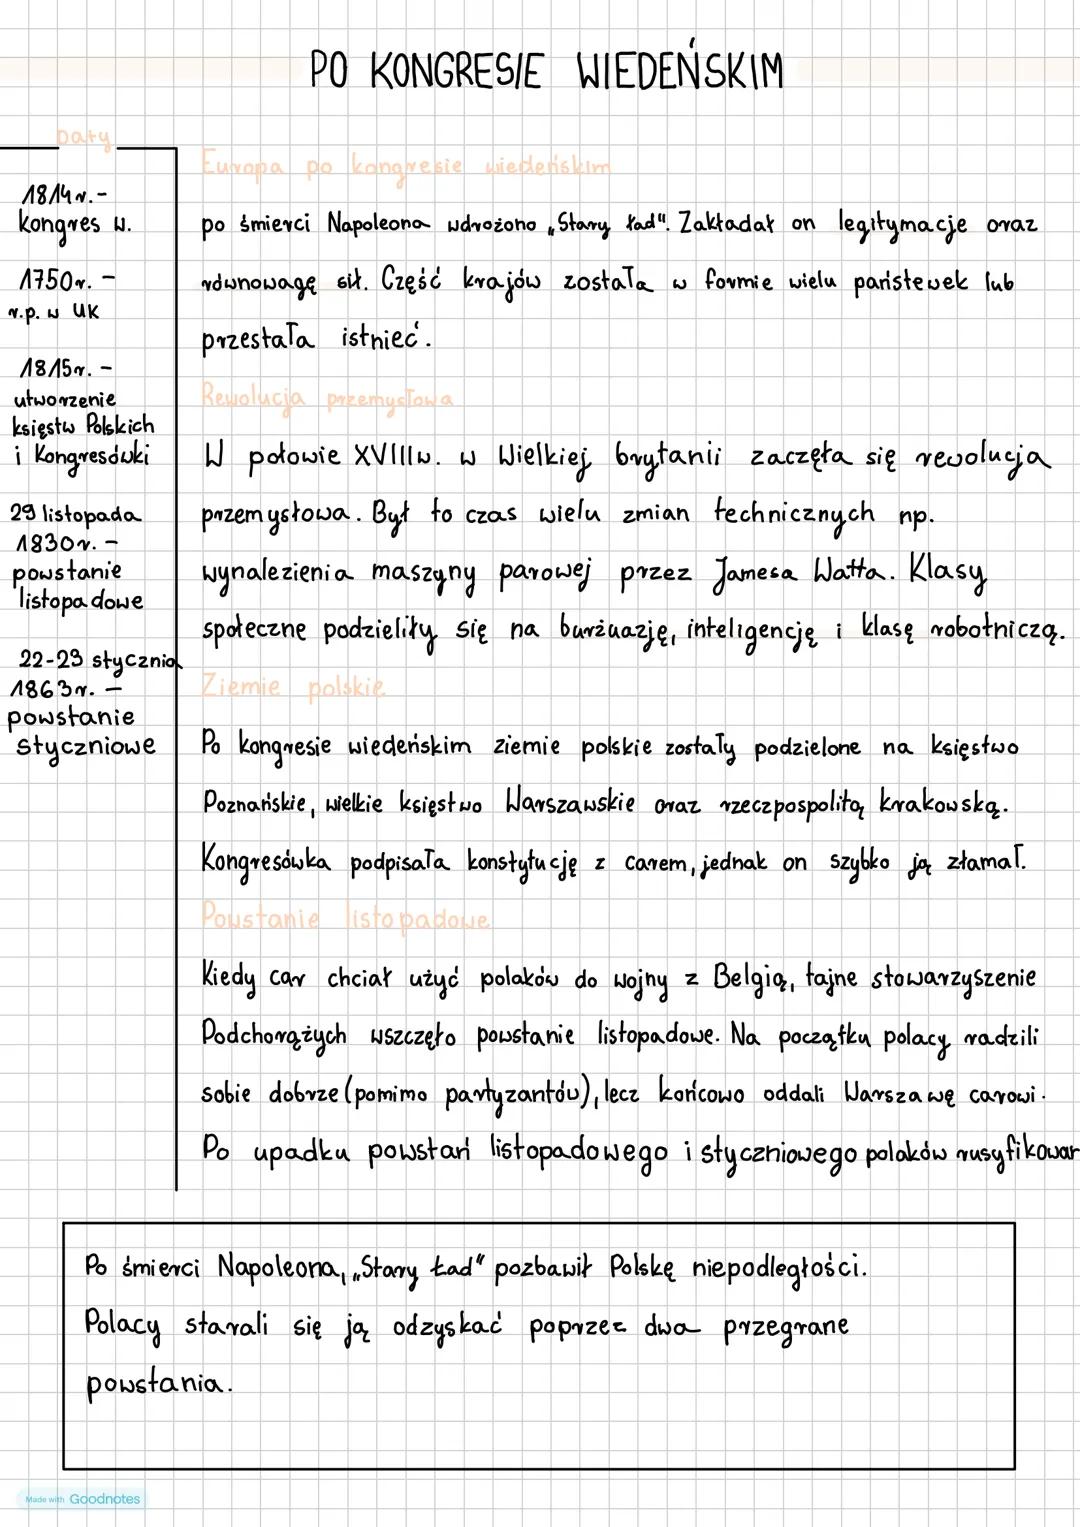 PO KONGRESIE WIEDEŃSKIM
Daty
1814r.-
kongres w.
1750r. -
r.p. w UK
1815r. -
utworzenie
księstw Polskich
i Kongresówki
29 listopada
1830r. -
powstanie
listopadowe
22-23 stycznia
1863r. -
powstanie
styczniowe
Europa po kongresie wiedeńskim
po śmierci Napoleona wdrożono „Stary ład". Zakładał on legitymacje oraz
równowagę sił. Część krajów została w formie wielu państewek lub
przestała istnieć.
Rewolucja przemysłowa
W połowie XVIIIw. w Wielkiej brytanii zaczęła się rewolucja
przemysłowa. Był to czas wielu zmian technicznych np.
wynalezienia maszyny parowej przez Jamesa Watta. Klasy
społeczne podzieliły się na burżuazję, inteligencję i klasę robotniczą.
Ziemie polskie
Po kongresie wiedeńskim ziemie polskie zostały podzielone na księstwo
Poznańskie, wielkie księstwo Warszawskie oraz rzeczpospolitą krakowską.
Kongresówka podpisała konstytucję z carem, jednak on szybko ją złamał.
Powstanie listopadowe
Kiedy car chciał użyć polaków do wojny z Belgią, tajne stowarzyszenie
Podchorążych wszczęło powstanie listopadowe. Na początku polacy radzili
sobie dobrze (pomimo partyzantów), lecz końcowo oddali Warszawę carowi.
Po upadku powstań listopadowego i styczniowego polaków rusyfikowan
Po śmierci Napoleona, „Stary Ład" pozbawił Polskę niepodległości.
Polacy starali się ją odzyskać poprzez dwa przegrane
powstania.
Made with Goodnotes